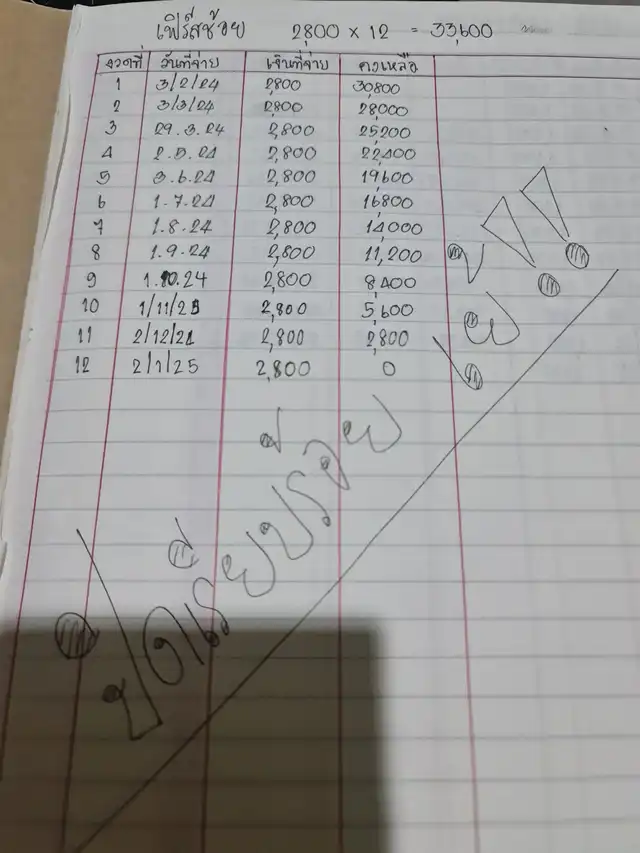 เฟิร์สช้อย 2,800 × 12 = 33,600 บาท
งวดที่ วันที่จ่าย เงินที่จ่าย คงเหลือ
1 3/2/24 2,800 30,800
2 3/3/24 2,800 28,000
3 29.3.24 2,800 25,200
4 2.5.24 2,800 22,400
5 3.6.24 2,800 19,600
6 1.7.24 2,800 16,800
7 1.8.24 2,800 14,000
8 1.9.24 2,800 11,200
9 1.10.24 2,800 8,400
10 1/11/25 2,800 5,600
11 2/12/24 2,800 2,800
12 2/1/25 2,800 0
ปิดเรียบร้อย
!!